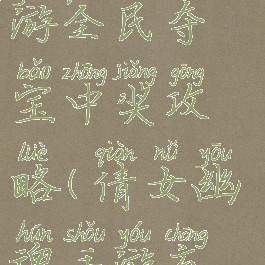 游全民夺
bǎo zhōng jiǎng gōng
宝中奖攻
lüè qiàn nǚ yōu
略(倩女幽
hún shǒu yóu chōng
魂手游充